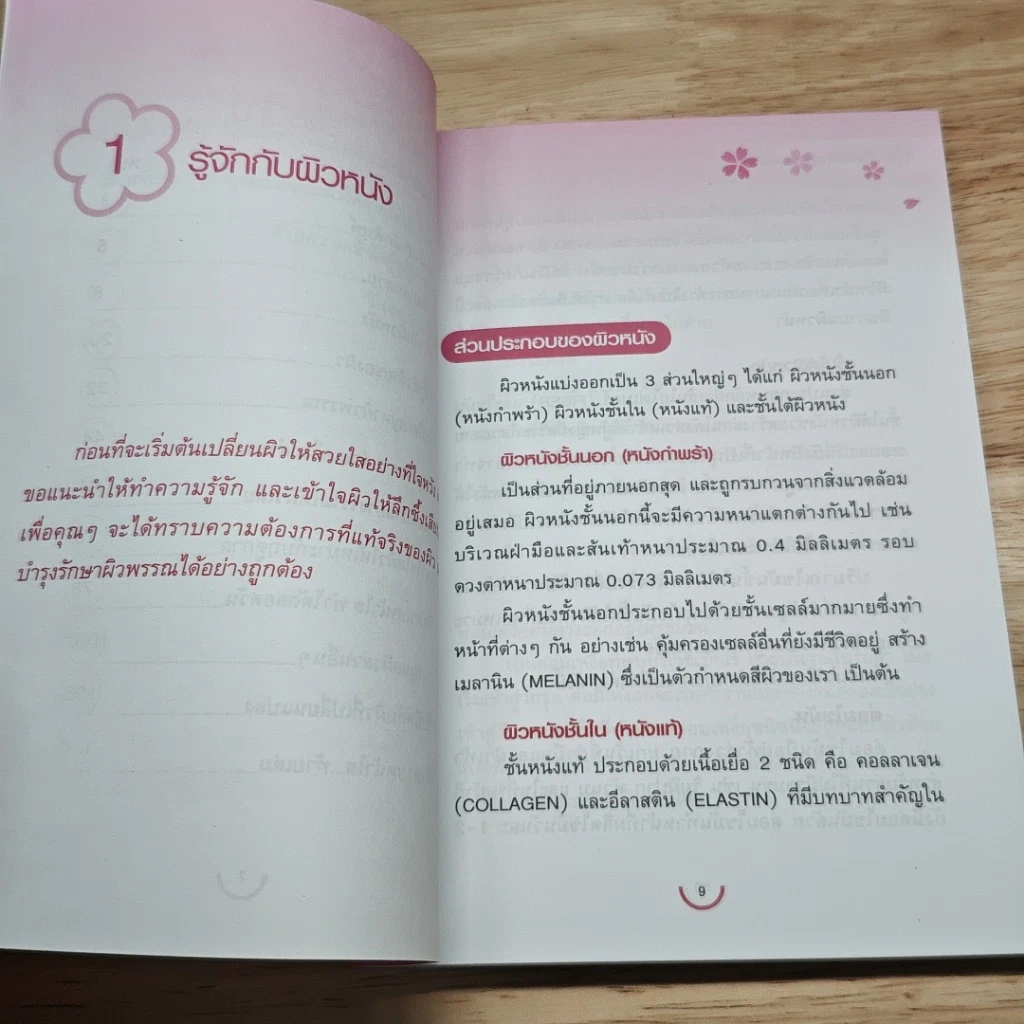 1
รู้จักกับผิวหนัง
ก่อนที่จะเริ่มต้นเปลี่ยนผิวให้สวยใสอย่างที่ใจหวัง
ขอแนะนำให้ทำความรู้จัก และเข้าใจผิวให้ลึกซึ้ง
เพื่อคุณๆ จะได้ทราบความต้องการที่แท้จริงของผิว
บำรุงรักษาผิวพรรณได้อย่างถูกต้อง
ส่วนประกอบของผิวหนัง
ผิวหนังแบ่งออกเป็น 3 ส่วนใหญ่ๆ ได้แก่ ผิวหนังชั้นนอก
(หนังกำพร้า) ผิวหนังชั้นใน (หนังแท้) และชั้นใต้ผิวหนัง
ผิวหนังชั้นนอก (หนังกำพร้า)
เป็นส่วนที่อยู่ภายนอกสุด และถูกรบกวนจากสิ่งแวดล้อม
อยู่เสมอ ผิวหนังชั้นนอกนี้จะมีความหนาแตกต่างกันไป เช่น
บริเวณฝ่ามือและสันเท้าหนาประมาณ 0.4 มิลลิเมตร รอบ
ดวงตาหนาประมาณ 0.073 มิลลิเมตร
ผิวหนังชั้นนอกประกอบไปด้วยชั้นเซลล์มากมายซึ่งทำ
หน้าที่ต่างๆ กัน อย่างเช่น คุ้มครองเซลล์อื่นที่ยังมีชีวิตอยู่ สร้าง
เมลานิน (MELANIN) ซึ่งเป็นตัวกำหนดสีผิวของเรา เป็นต้น
ผิวหนังชั้นใน (หนังแท้)
ชั้นหนังแท้ ประกอบด้วยเนื้อเยื่อ 2 ชนิด คือ คอลลาเจน
(COLLAGEN) และอีลาสติน (ELASTIN) ที่มีบทบาทสำคัญใน
9